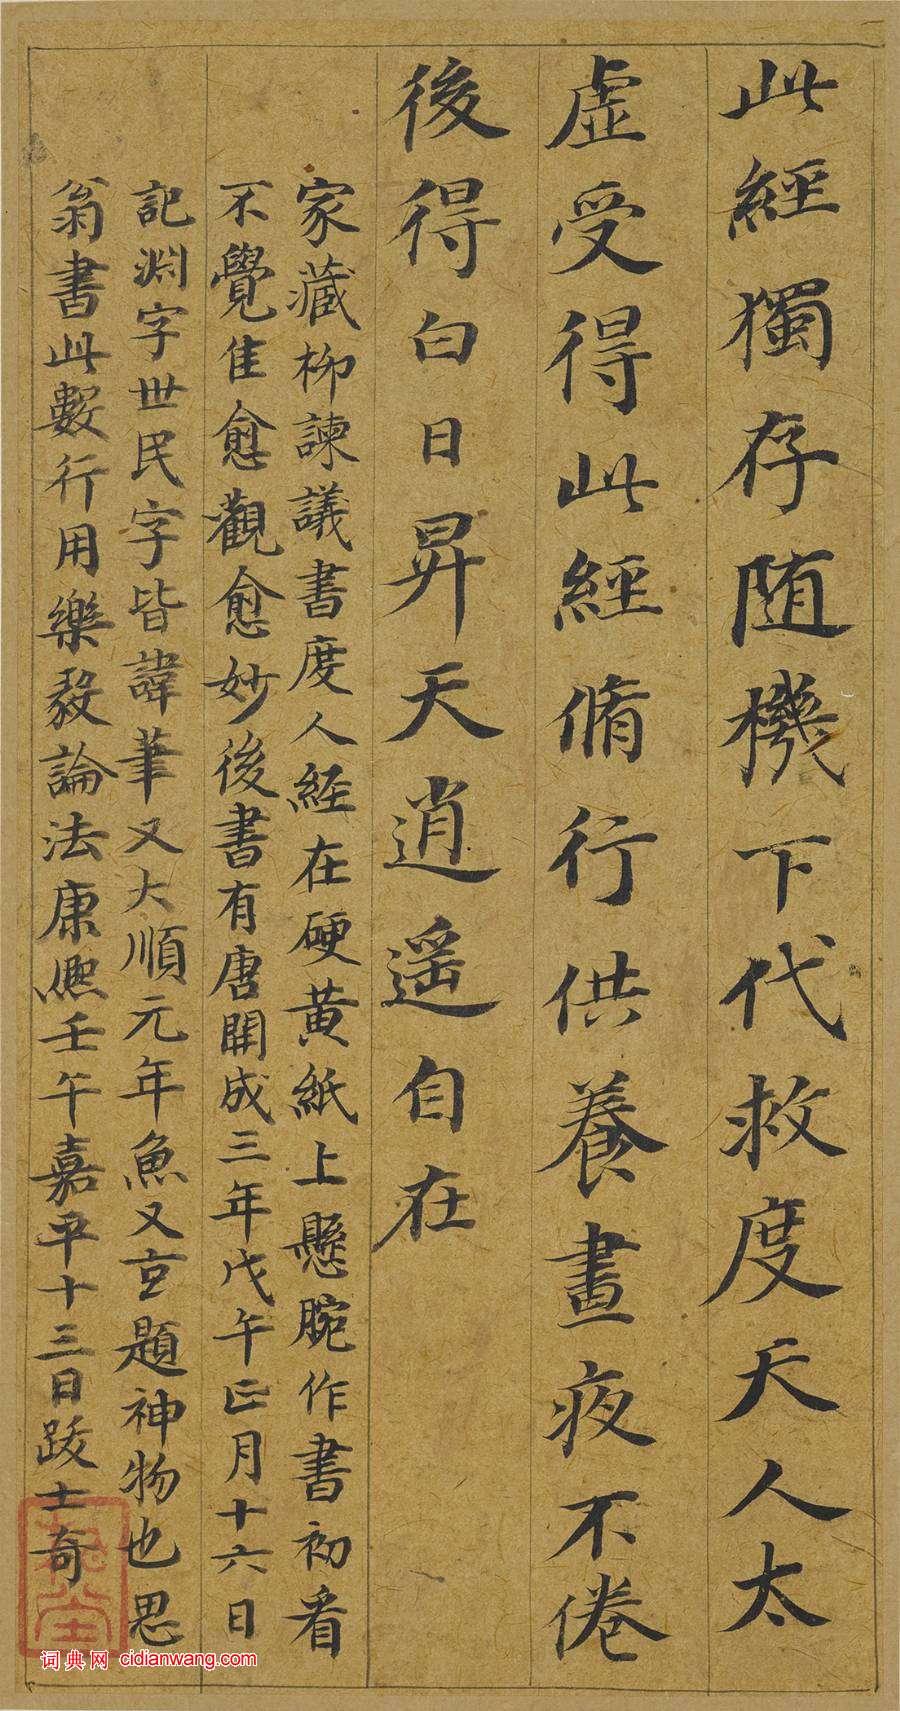 此經獨存随機下代救度天人太
虚受得此經脩行供養晝夜不倦
後得白日昇天逍遥自在
家藏柳諫議書度人經在硬黄紙上懸腕作書初看
不覺佳愈觀愈妙後書有唐開成三年戊午正月十六日
記淵字世民字皆諱筆又大順元年魚又玄題神物也思
翁書此數行用樂毅論法康熙壬午嘉平十三日跋士奇
词典网 cidianwang.com